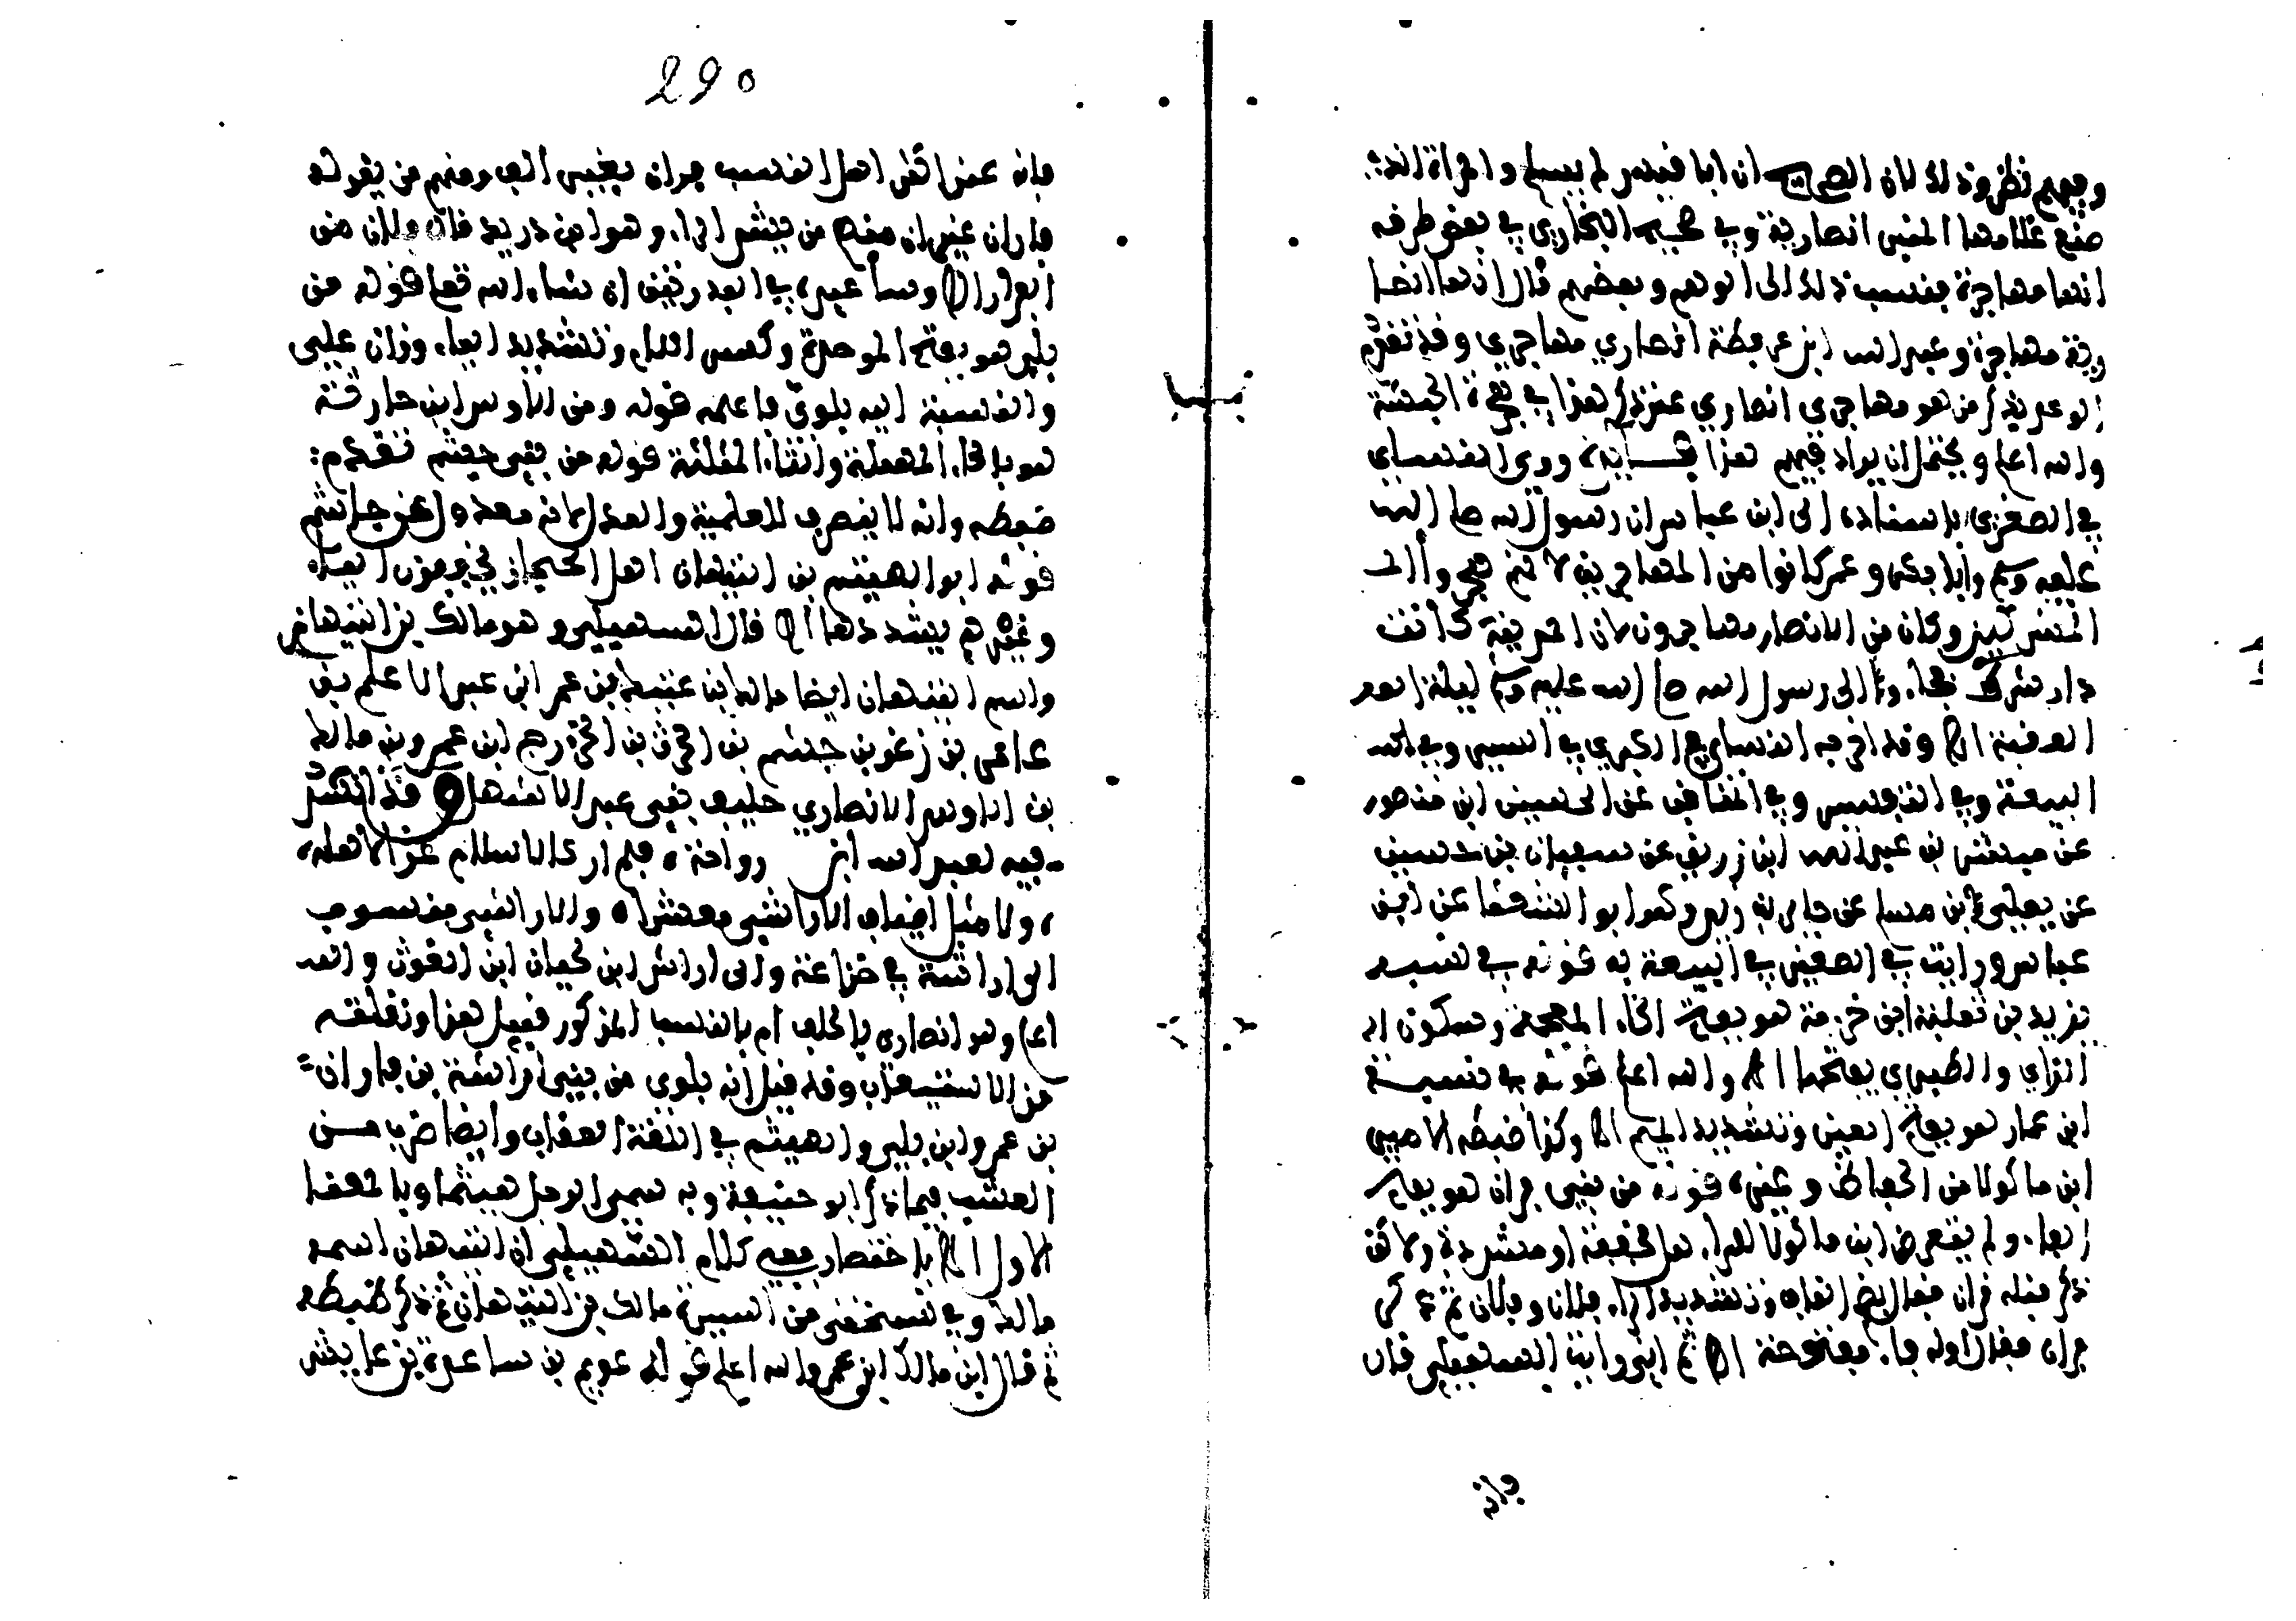 وفيهم نظر وذلك لان الصحيح ان ابا قيس لم يسلم والمراة التي
صنع غلامها المنبر انصارية وفي صحيح البخاري في بعض طرقه
انها مهاجرة فنسب ذلك الى الوهم وبعضهم قال انها انصا
رية مهاجرة وعبد الله ابن عرفطة انصاري مهاجري وقد تقدم
من هو مهاجري انصاري عند ذكر هذا في هجرة الحبشة
والله اعلم ويحتمل ان يراد فيهم هذا روى النسساي
في الصغرى باسناده الى ابن عباس ان رسول الله صلى الله
عليه وسلم وابا بكر وعمر كانوا من المهاجرين لانهم هجروا الم
المشركين وكان من الانصار مهاجرون لان المدينة كانت
دار شرك فجاءوا الى رسول الله صلى الله عليه وسلم ليلة العـ
العقبة اه وقد اخرجه النساي في الكبرى في السير وفي
البيعة وفي التفسير وفي المناقب عن الحسين ابن منصور
عن مبشر بن عبد الله ابن زرين عن سفيان بن حسين
عن يعلى ابن مسلم عن جابر بن زيد وهو ابو الشعثا عن ابن
عباس ورايت في الصغرى في البيعة به قوله في نسب
يزيد بن ثعلبة ابن خزمة هو بفتح الخاء المعجمة وسكون ا
الزاي والطبري يفتحها اه والله اعلم قوله في نسبة
ابن عمار هو بفتح العين وتشديد الميم اه وكذا ضبطه الامير
ابن ماكولا من الحفاظ وغيره قوله من بني فران هو بفتح
الفاء ولم يتعرض ابن ماكولا للراء هل مخففة او مشددة ولاكن
ذكر قبله قران فقال بضم القاف وتشديد الراء فلان وفلان ثم ذكر
فران فقال اوله فاء مفتوحة اه ثم اني رايت السهيلي قال
290
فانه عند اهل النسب فران بغير الف ومنهم من يقوله
فاران غير ان منهم من يشدد الراء وهو ابن دريد قال وفلان من
الفرار اه وسا عيده في البدريين ان شاء الله تعا قوله من
بلي هو بفتح الموحدة وكسر اللام وتشديد الياء وزان علي
والنسبة اليه بلوي فاعلمه قوله ومن الاوس ابن حارثة
هو بالحاء المهملة والثاء المثلثة قوله من بني جشم تقدم
ضبطه وانه لا ينصرف للعلمية والعدل لانه معدول عن جاشم
قوله ابو الهيثم بن التيهان اهل الحجاز يخففون الياء
وغيرهم يشددها اه قال السهيلي وهو مالك بن التيهان
واسم التيهان ايضا مالك ابن عتيك بن عمر ابن عبد الاعلم بن
عامر بن زعون بن جشم بن الحرث بن الخزرج ابن عمرو بن مالك
بن الاوس الانصاري حليف بني عبد الاشهل وقد انشد
فيه لعبد الله ابن رواحة فلم ار كالاسلام عزا لاهله
ولا مثل اضياف الاراشي معشرا والاراشي منسوب
الى اراشة في خزاعة والى اراش ابن لحيان ابن الغوث والله
اعلم وهو انصاري بالحلف ام بالنسب المذكور قيل هذا ونقلته
من الاستيعاب وقد قيل انه بلوي من بني اراشة بن فاران
بن عمرو ابن بلي والهيثم في اللغة العقاب وايضا ضرب من
العشب فيما ذكر ابو حنيفة وبه سمي الرجل هيثما وبالمعنى
الاول اه باختصار ففي كلام السهيلي ان التيهان اسمه
مالك وفي نسختي من السيرة مالك بن التيهان ثم ذكر ضبطه
ثم قال ابن مالك ابن عمرو والله اعلم قوله عويم بن ساعدة بن عايش